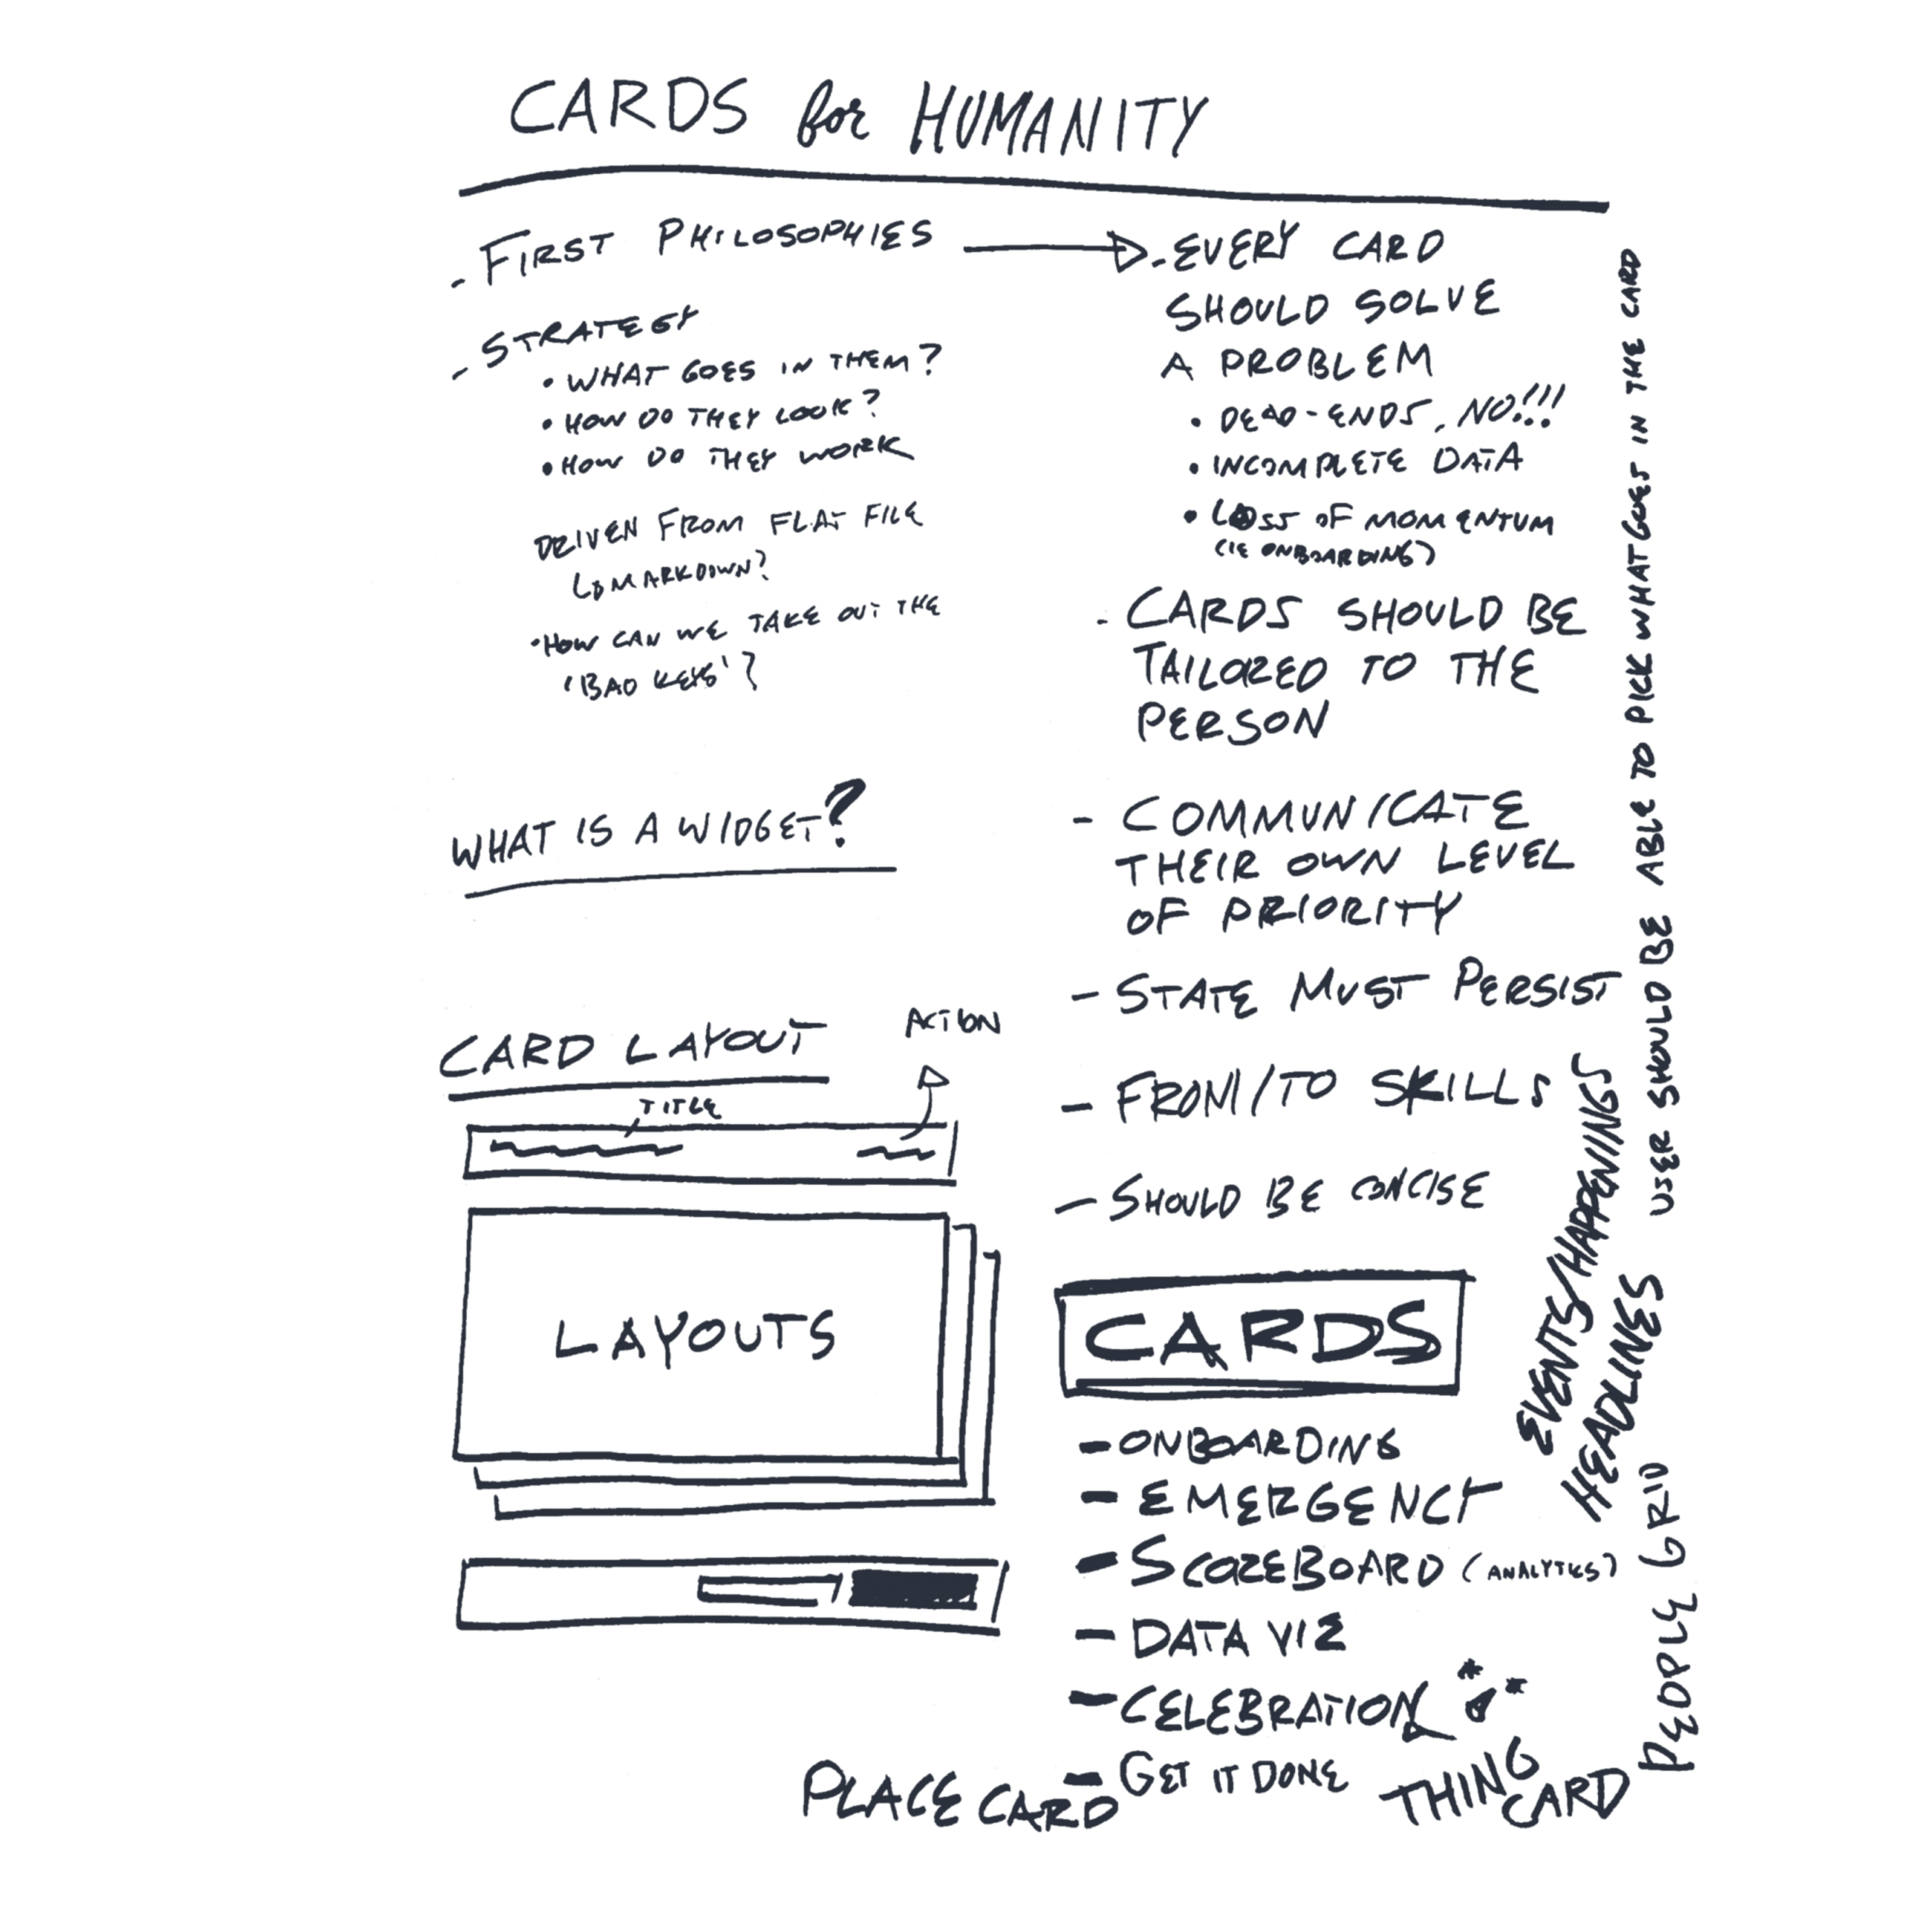 CARDS for HUMANITY
- FIRST PHILOSOPHIES
- STRATEGY
• WHAT GOES IN THEM?
• HOW DO THEY LOOK?
• HOW DO THEY WORK
DRIVEN FROM FLAT FILE
MARKDOWN?
• HOW CAN WE TAKE OUT THE
'BAD KEYS'?
WHAT IS A WIDGET?
CARD LAYOUT
ACTION
TITLE
LAYOUTS
- EVERY CARD
SHOULD SOLVE
A PROBLEM
• DEAD-ENDS, NO!!!
• INCOMPLETE DATA
• LOSS OF MOMENTUM
(IE ONBOARDING)
- CARDS SHOULD BE
TAILORED TO THE
PERSON
- COMMUNICATE
THEIR OWN LEVEL
OF PRIORITY
- STATE MUST PERSIST
- FROM/TO SKILLS
- SHOULD BE CONCISE
CARDS
- ONBOARDING
- EMERGENCY
- SCOREBOARD (ANALYTICS)
- DATA VIZ
- CELEBRATION
- GET IT DONE
PLACE CARD
THING
CARD
PEOPLE GRID
EVENTS/HAPPENINGS
HEADLINES
USER SHOULD BE ABLE TO PICK WHAT GOES IN THE CARD